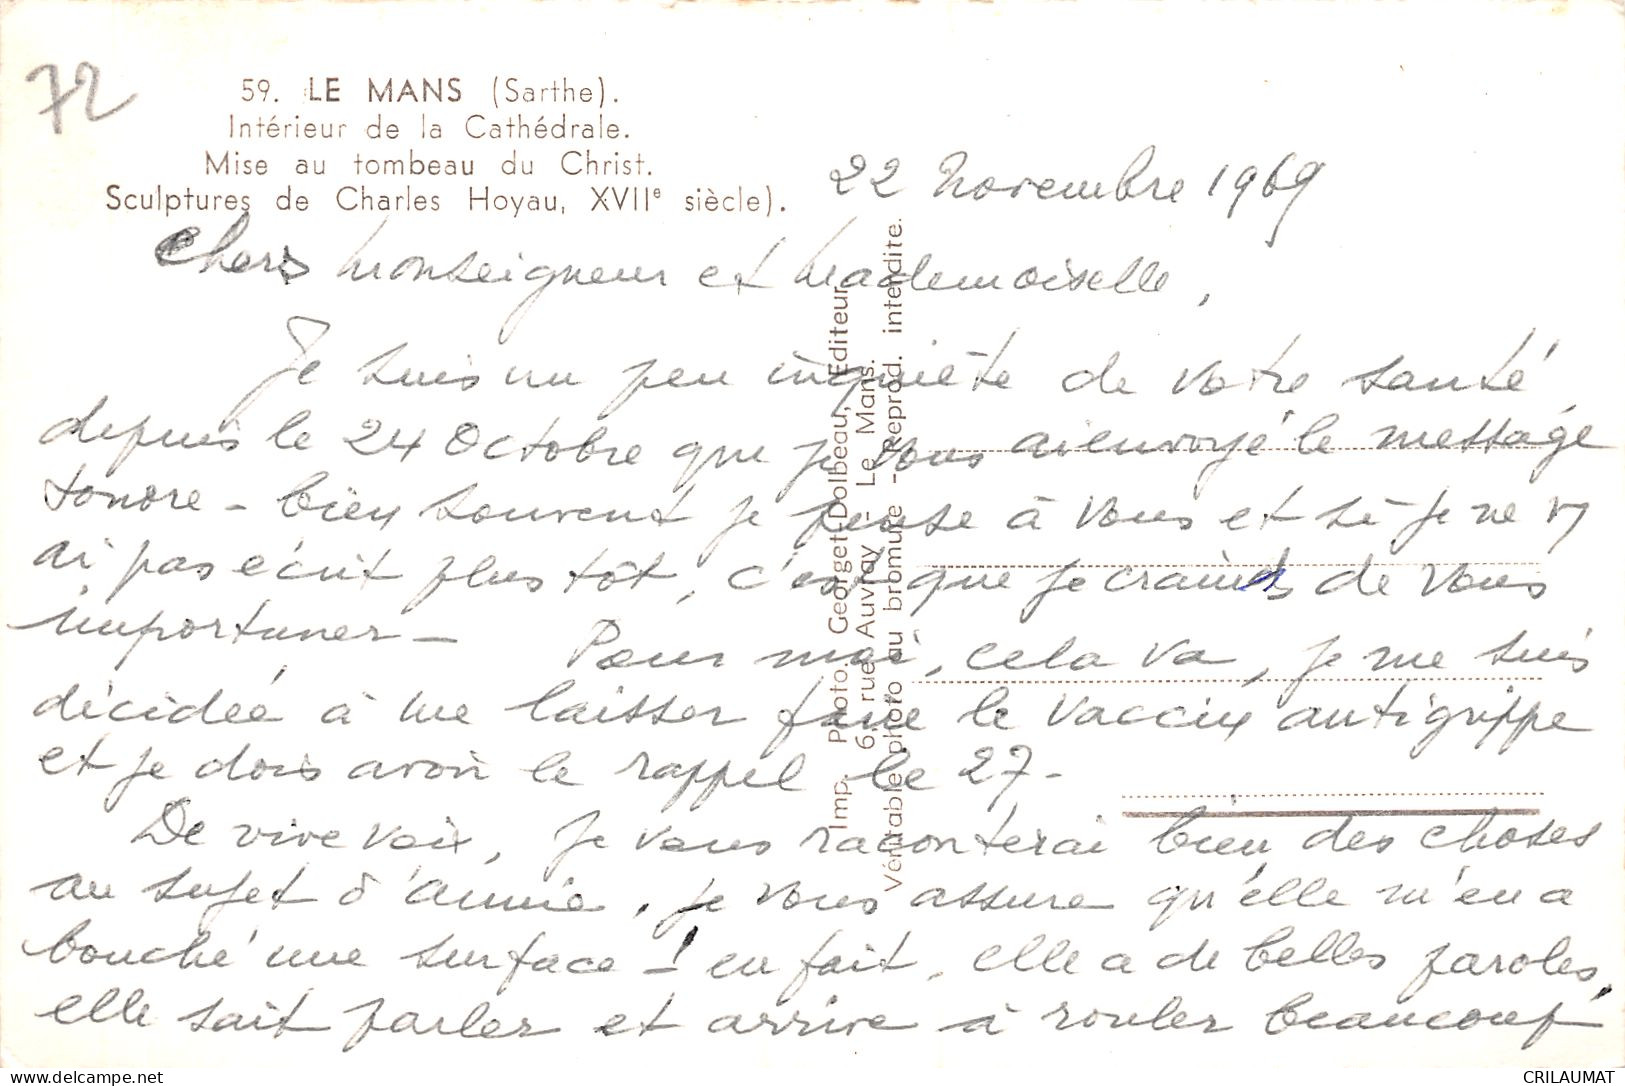 72
59. LE MANS (Sarthe).
Intérieur de la Cathédrale.
Mise au tombeau du Christ.
Sculptures de Charles Hoyau, XVIIe siècle).
22 Novembre 1969
Chers Monseigneur et Mademoiselle,
Je suis un peu inquiète de votre santé
depuis le 24 Octobre que je vous ai envoyé le message
sonore - bien souvent je pense à vous et si je ne vs
ai pas écrit plus tôt, c'est que je crainds de vous
importuner - Pour moi, cela va, je me suis
décidée à me laisser faire le vaccin antigrippe
et je dois avoir le rappel le 27 -
De vive voix, je vous raconterai bien des choses
au sujet d'Annie. je vous assure qu'elle m'en a
bouché une surface -! en fait, elle a de belles paroles,
elle sait parler et arrive à rouler beaucoup
Imp. Photo. Georget-Dolbeau, Editeur
6, rue Auvray - Le Mans.
Véritable photo au bromure - Reprod. interdite.
CRILAUMAT
www.delcampe.net